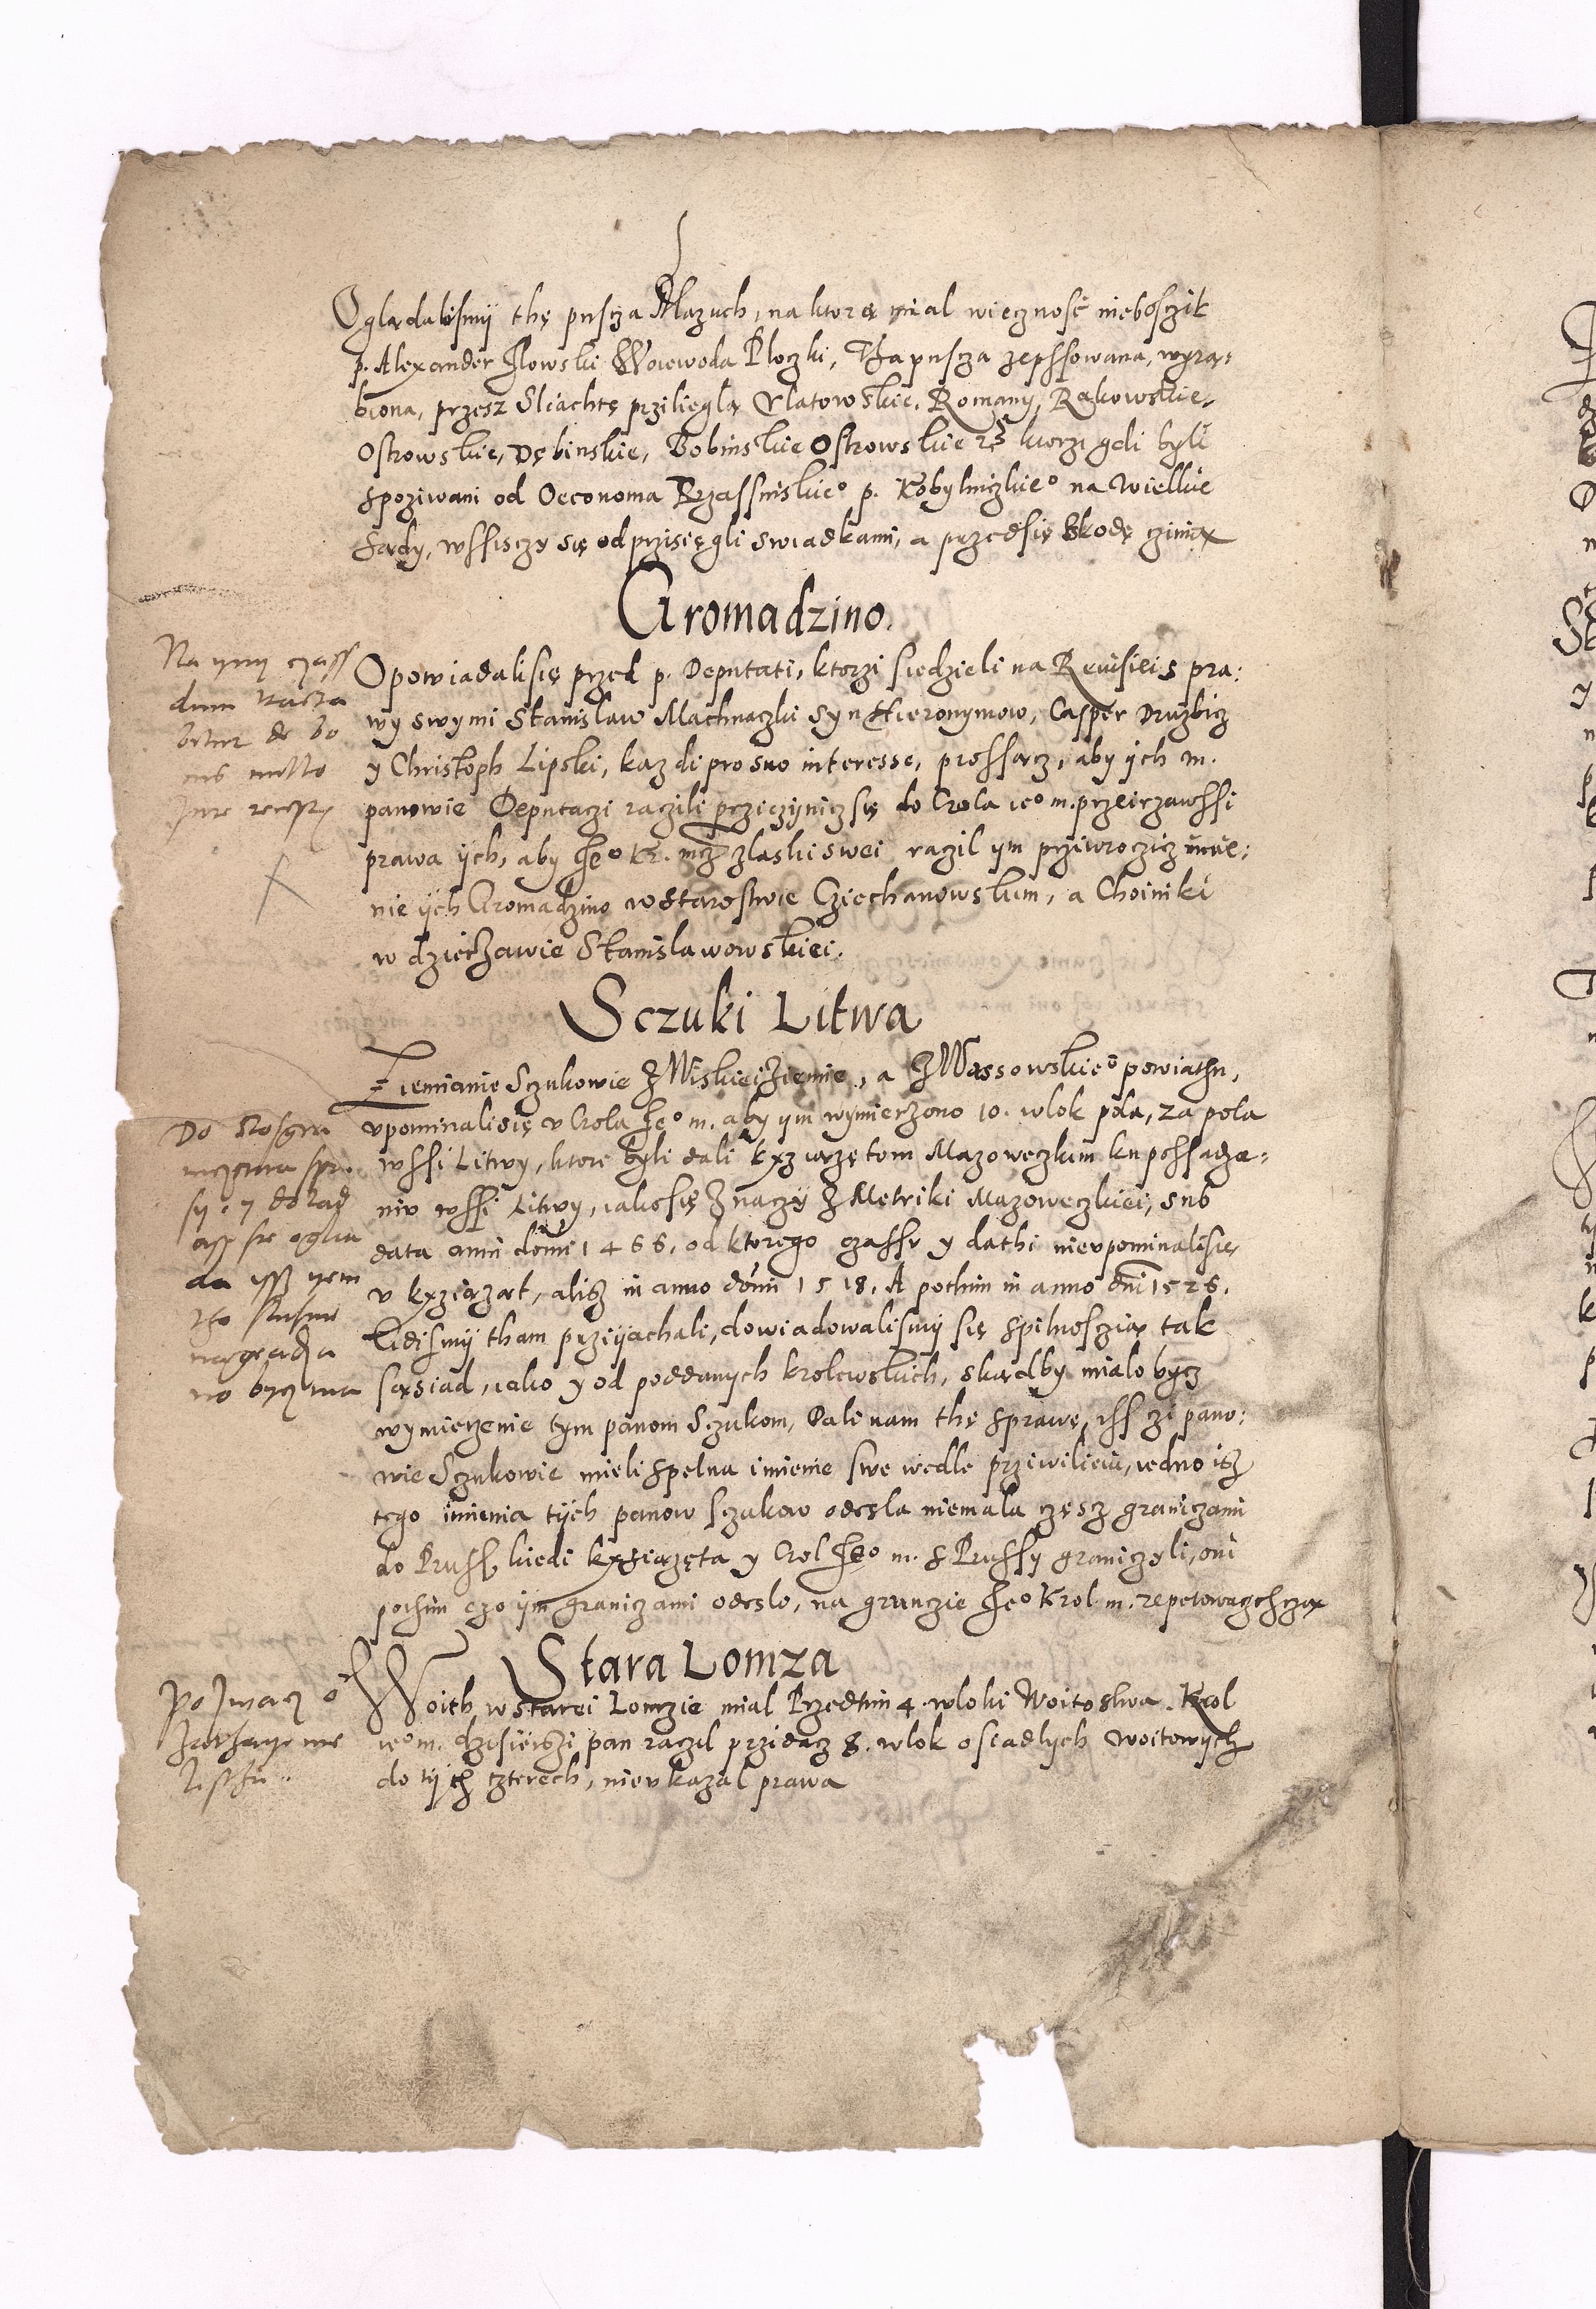 Oglądalismÿ thę pusczą Mazuch, na ktorą mial wiecznosć nieboszcik
p. Alexander Ilowski Woiewoda Ploczki, Tha puscza zepssowana, wyrą:
biona, przesz Sliachtę prziliegłą Vlatowskie, Romany, Rąkowskie,
Ostrowskie, Dębinskie, Bobinskie Ostrowskie ktorzi gdi byli
spoziwani od Oeconoma p. Kobylniczkieº na wielkie
sądy, wssisczy się odprzisięgli swiadkami, a przedsię szkodę czinią
Gromadzino.
Na ynny czass
Opowiadali się przed p. Deputati, ktorzi siedzieli na Reuisiis pra:
dum tracta
wy swymi Stanislaw Machnaczki syn Hieronymow, Casper Druzbicz
bitur de bo
y Christoph Lipski, kazdi pro suo interesse, prossącz, aby ych m.
nis
panowie Deputaczi raczili prziczÿnicz się do Crola ieº m. przeirzawssi
Iure
prawa ÿch, aby Jeº Kr. mcz z laski swei raczil ym prziwroczicz imie:
nie ÿch Gromadzino w Starostwie Cziechanowskim, a Choiniki
w dzierzawie Stanislawowskiei.
Sczuki Litwa
Ziemianie Sczukowie z Wiskiei ziemie, a z Wąssowskieº powiathu,
Do
vpominali się v Crola Jeº m. aby ym wymierzono 10. wlok pola, za pola
wssi Litwy, ktore byli dali kxziążętom Mazoweczkim ku possadze:
sÿ: y do
niu wssi Litwy, iako się znaczÿ z Metriki Mazoweczkiei, sub
się oglia
data anni domi 1466, od ktorego czassu y dathi nie vpominali się
da
v kxziążąt, alisz in anno domi 1518. A pothim in anno dni 1526.
Gdismÿ tham prziÿachali, dowiadowalismÿ się spilnoscią tak
nagradza
sąsiad, iako y od poddanych krolewskich, skądby mialo bycz
no bycz ma
wymierzenie tym panom Sczukom, Dali nam thę sprawę, iss czi pano:
wie Sczukowie mieli spelna imienie swe wedle prziwilieiu, iedno isz
tego imienia tÿch panow Sczukow odesla niemala częsz graniczami
do Pruss, kiedi kxsiążęta y Crol Jeº m. s Prussy graniczyli, oni
pothim czo ÿm graniczami odeslo, na grunczie Jeº Krol. m. repetowacz chczą
Stara Lomza
Woith w starei Lomzie mial Przedtim 4. wloki Woitostwa. Krol
ieº m. dzisieiszi pan raczil przidacz 8. wlok osiadlych woitowych
do tÿch czterech, nie vkazal prawa